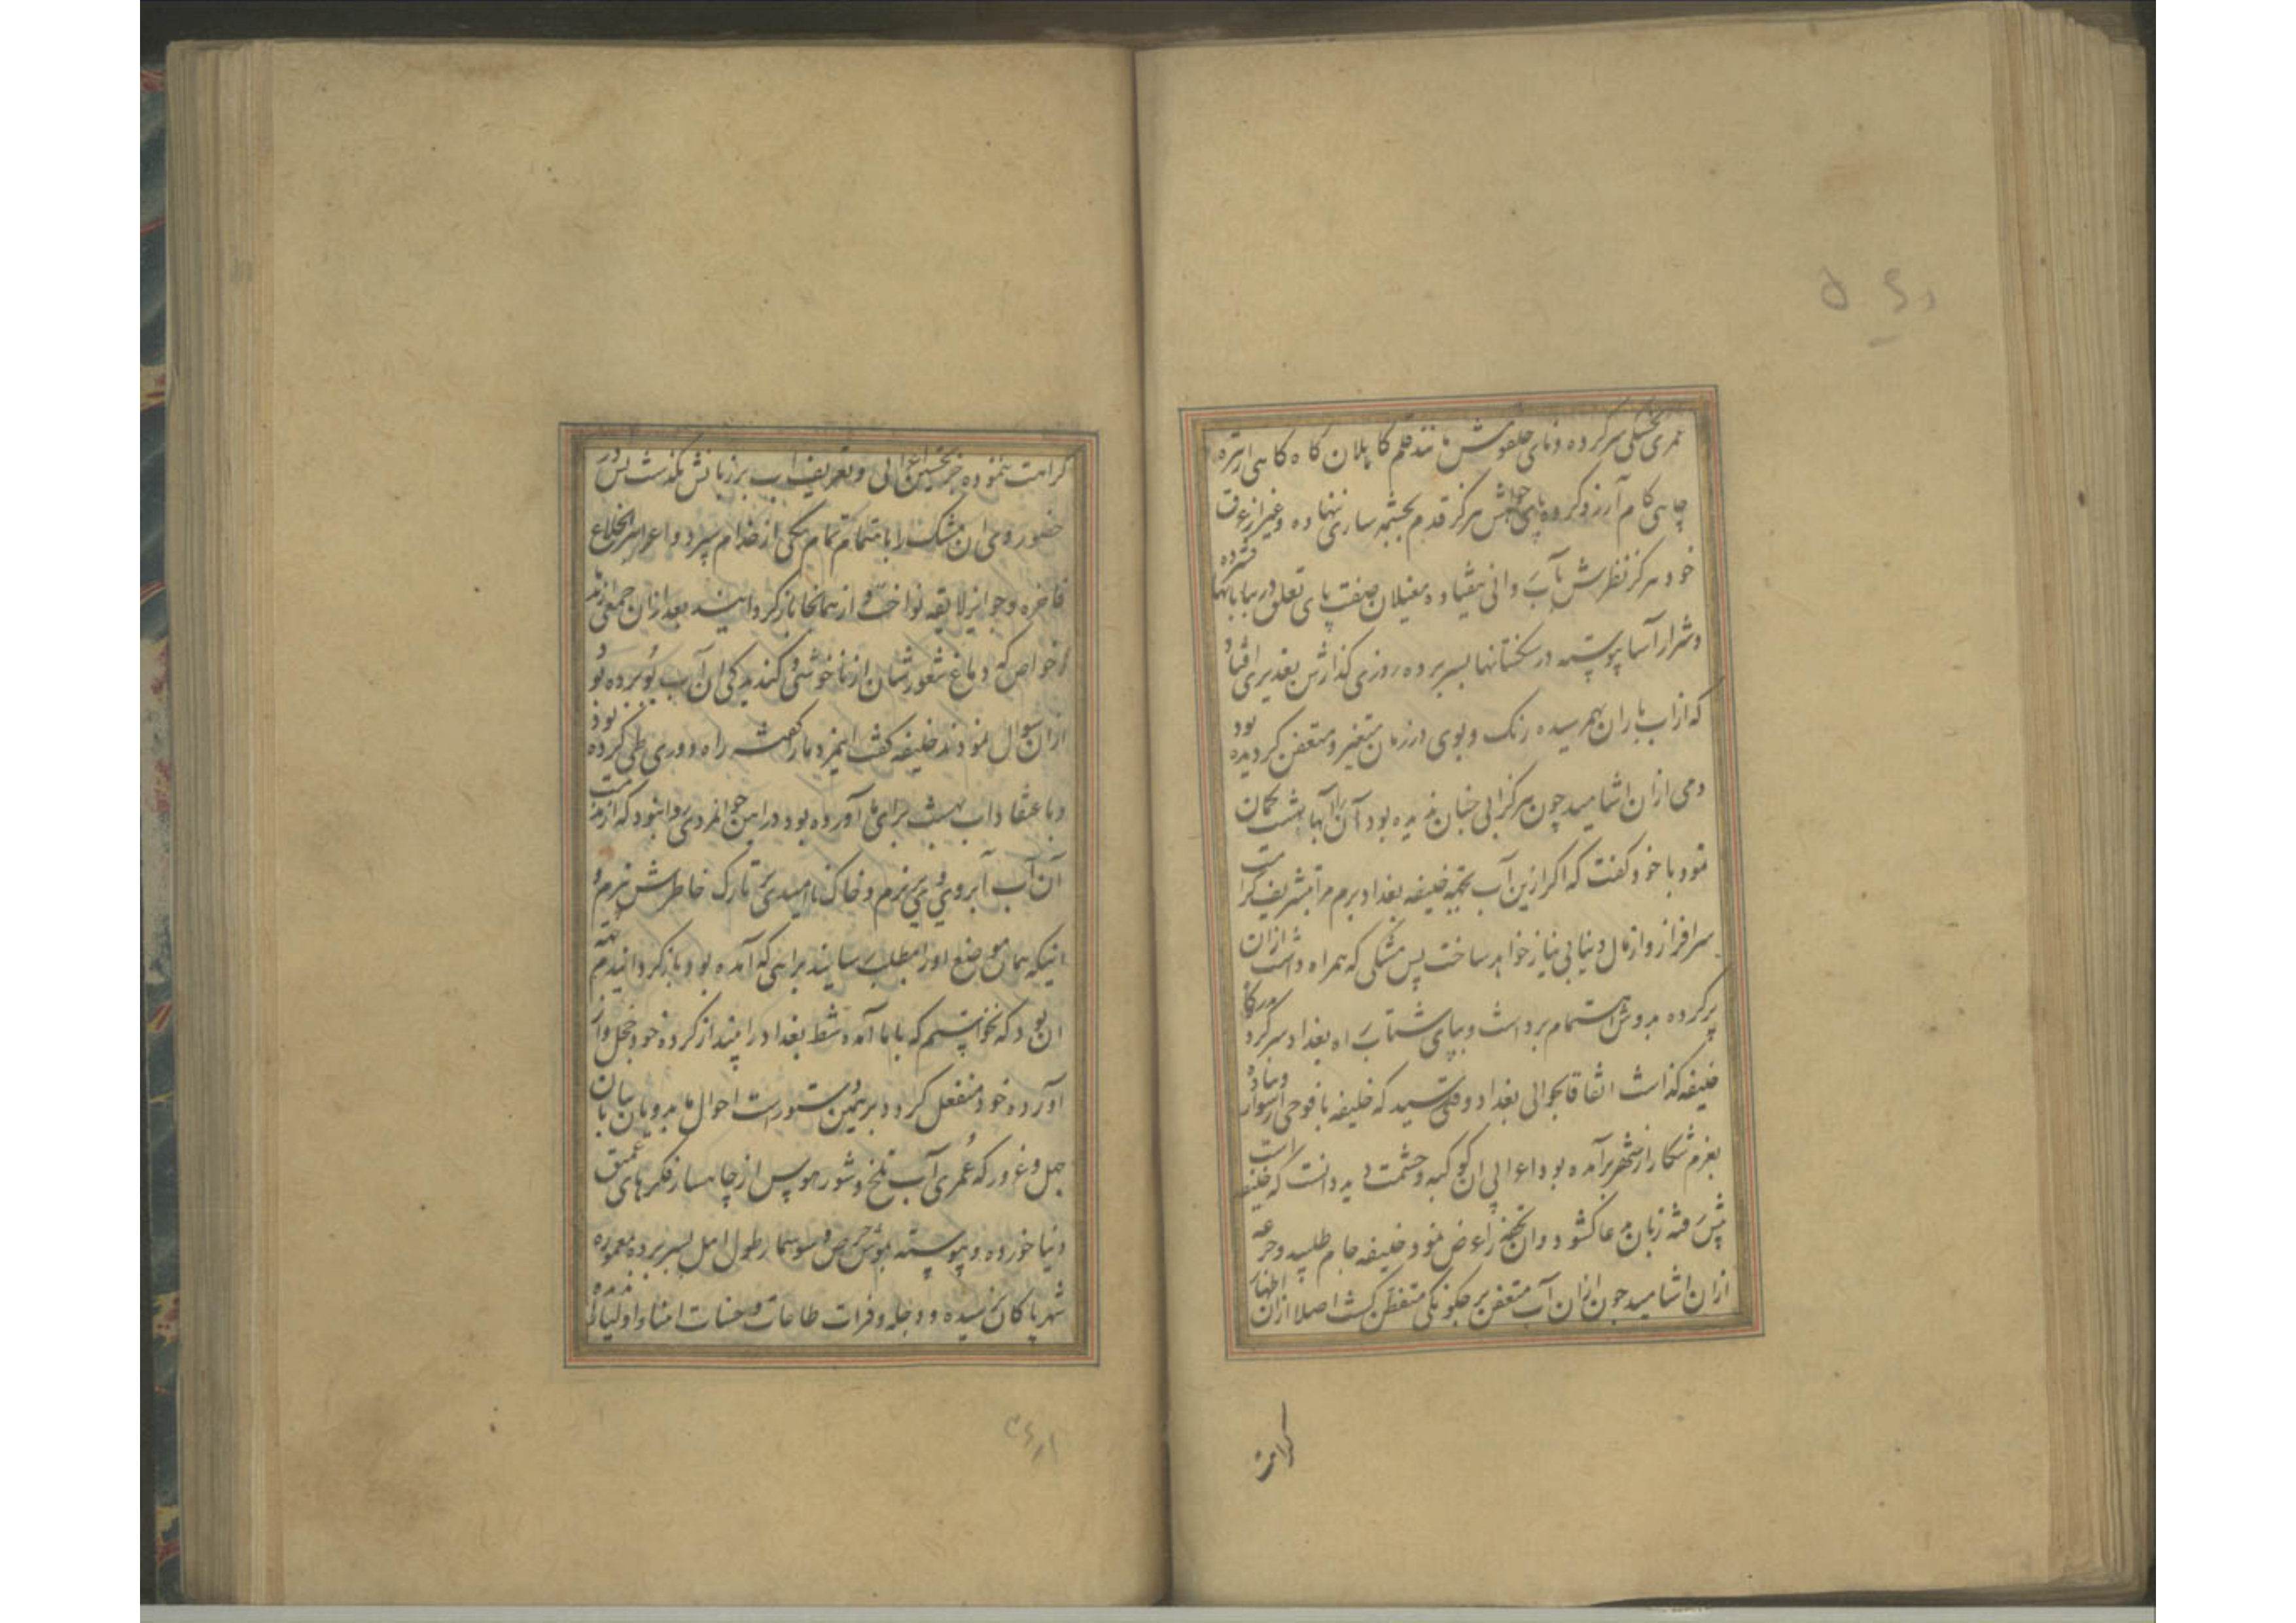 عمری بخشکی سر کرده و نای حلقومش مانند قلم کاهلان گاه گاهی از تیره
چاهی کام آرزو کرده پای خواهش هرگز قدم بچشمه ساری ننهاده و غیر از عرق
خود هرگز نظرش بآب روانی نیفتاده مغیلان صفت پای تعلق در بیابانها فشرده
و شرار آسا پیوسته در سنگستانها بسر برده روزی گذارش بغدیری افتاد
که از آب باران بهم رسیده رنگ و بوی در زمان متغیر و متعفن گردیده بود
دمی ازان اشامید چون هرگز ابی چنان ندیده بود آن را آب بهشت گمان
نمود با خود گفت که اگر ازین آب تحفه خلیفه بغداد برم مرا بتشریف کرامت
سرافراز و از مال دنیا بی نیاز خواهد ساخت پس مشکی که همراه داشت ازان
پر کرده بدوش اهتمام برداشت و بپای شتاب راه بغداد سر کرد
خلیفه گذاشت اتفاقا بحوالی بغداد وقتی رسید که خلیفه با فوجی از سوار و پیاده
بعزم شکار از شهر برآمده بود اعرابی ان کوکبه و حشمت دید دانست که خلیفه است
پیش رفته زبان مدعا گشود و ان تحفه را عرض نمود خلیفه جام طلبید و جرعه
ازان اشامید چون ازان آب متعفن بر چگونگی متفطن گشت اصلا ازان اظهار
کراهت
کراهت ننموده جز تحسین اعرابی و تعریف اب بر زبانش نگذشت پس در
حضور وی ان مشک را باهتمام تمام بیکی از خدام سپرد و اعرابی را بخلاع
فاخره و جوایز لایقه نواخته از همانجا باز گردانیند بعد ازان جمعی از
خواص که دماغ شعورشان از ناخوشی و گندیدگی ان آب بو برده بود
ازان سوال نمودند خلیفه گفت اینمرد بادیه راه دوری طی کرده بود
و باعتقاد اب بهشت برای ما آورده بود در ایین جوانمردی روا نبود که از مذمت
آن آب آبروی وی بریزم و خاک ناامیدی بر تارک خاطرش بیزم و
اینکه همان موضع او را بمطلب رسانیده براهی که آمده بود باز گردانیدم
ان بود که نخواستم که بابا آمده شط بغداد را بیند از کرده خود خجل و از
آورده خود منفعل گردد و بر همین دستورست احوال ما بدویان بیابان
جهل و غرور که عمری آب تلخ و شور هوس از چاهسار فکرهای عمیق
دنیا خورده و پیوسته بموش حرص و سوسمار طول امل بسر برده بمعموره
شهر پاکان نرسیده و دجله و فرات طاعات و حسنات امنا و اولیا را ندیده